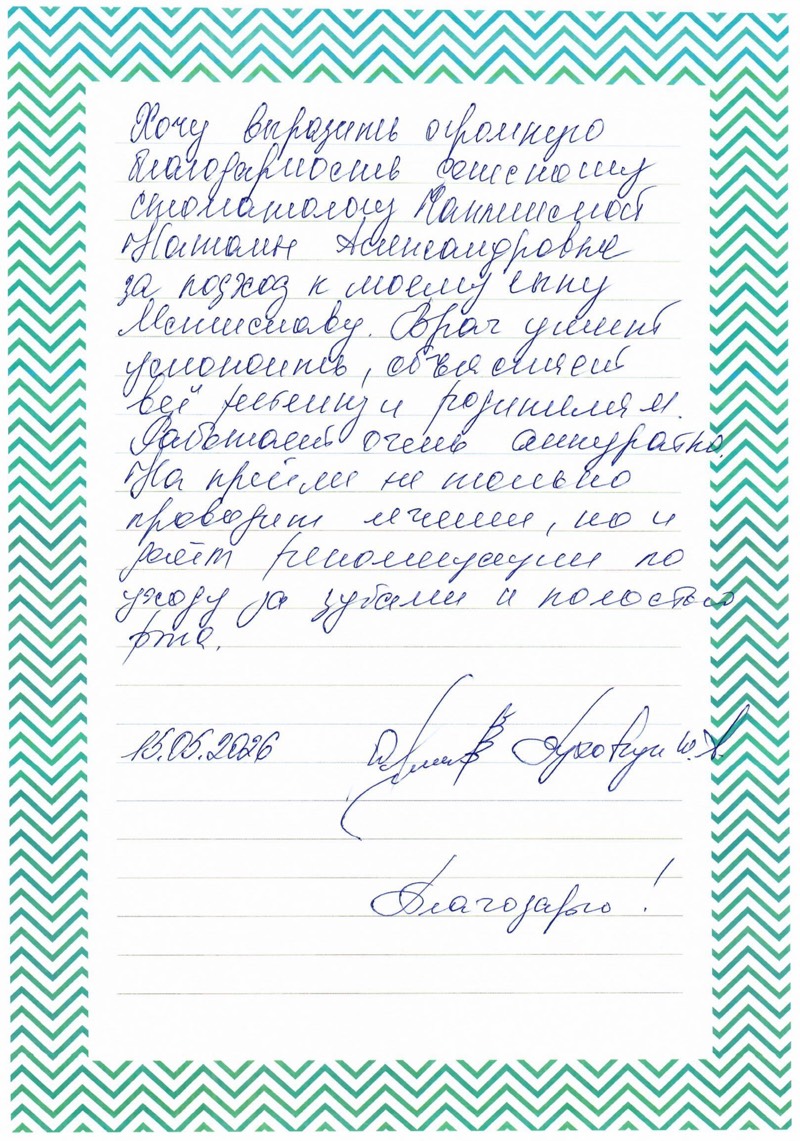 Хочу выразить огромную
благодарность детскому
стоматологу
Наталье Александровне
за подход к моему сыну
Мстиславу. Врач умеет
успокоить, объясняет
всё ребенку и родителям.
Работает очень аккуратно.
На приёме не только
проводит лечение, но и
даёт рекомендации по
уходу за зубами и полостью
рта.
15.05.2026
Благодарю!